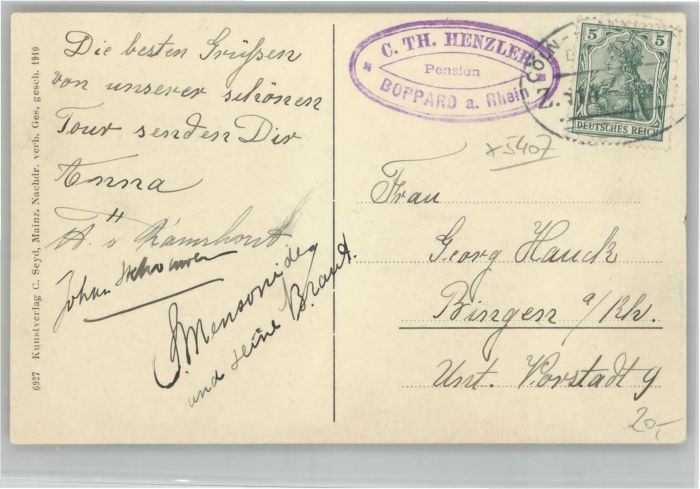 Die besten Grüßen
von unserer schönen
Tour senden Dir
Anna
Johan
und seine Braut.
6927 Kunstverlag C. Seyd, Mainz, Nachdr. verb. Ges. gesch. 1910
C. TH. HENZLER
Pension
BOPPARD a. Rhein
5 5
DEUTSCHES REICH
x5407
Frau
Georg Hauck
Bingen a/Rh.
Unt. Vorstadt 9
20,-